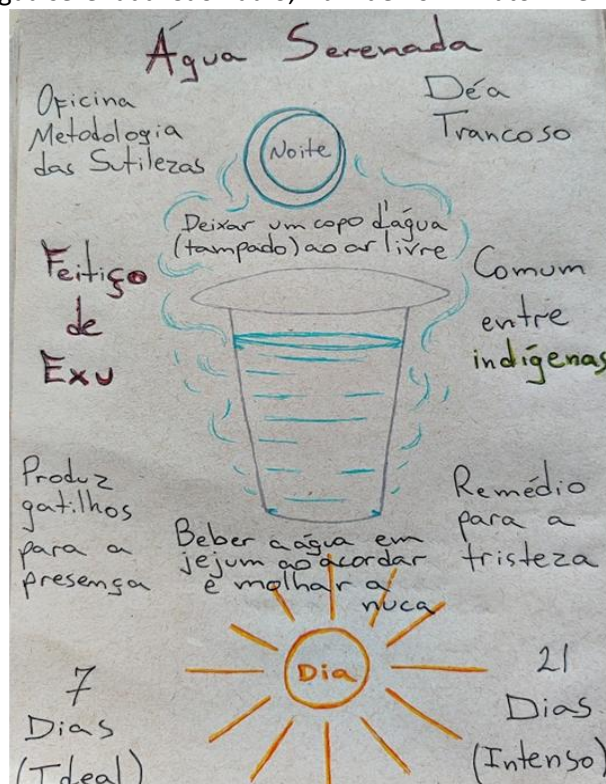 Água Serenada
Oficina
Metodologia
das Sutilezas
Déa
Trancoso
Noite
Deixar um copo d'água
(tampado) ao ar livre
Feitiço
de
Exu
Comum
entre
indígenas
Produz
gatilhos
para a
presença
Remédio
para a
tristeza
Beber a água em
jejum ao acordar
e molhar a
nuca
Dia
7
Dias
(Ideal)
21
Dias
(Intenso)